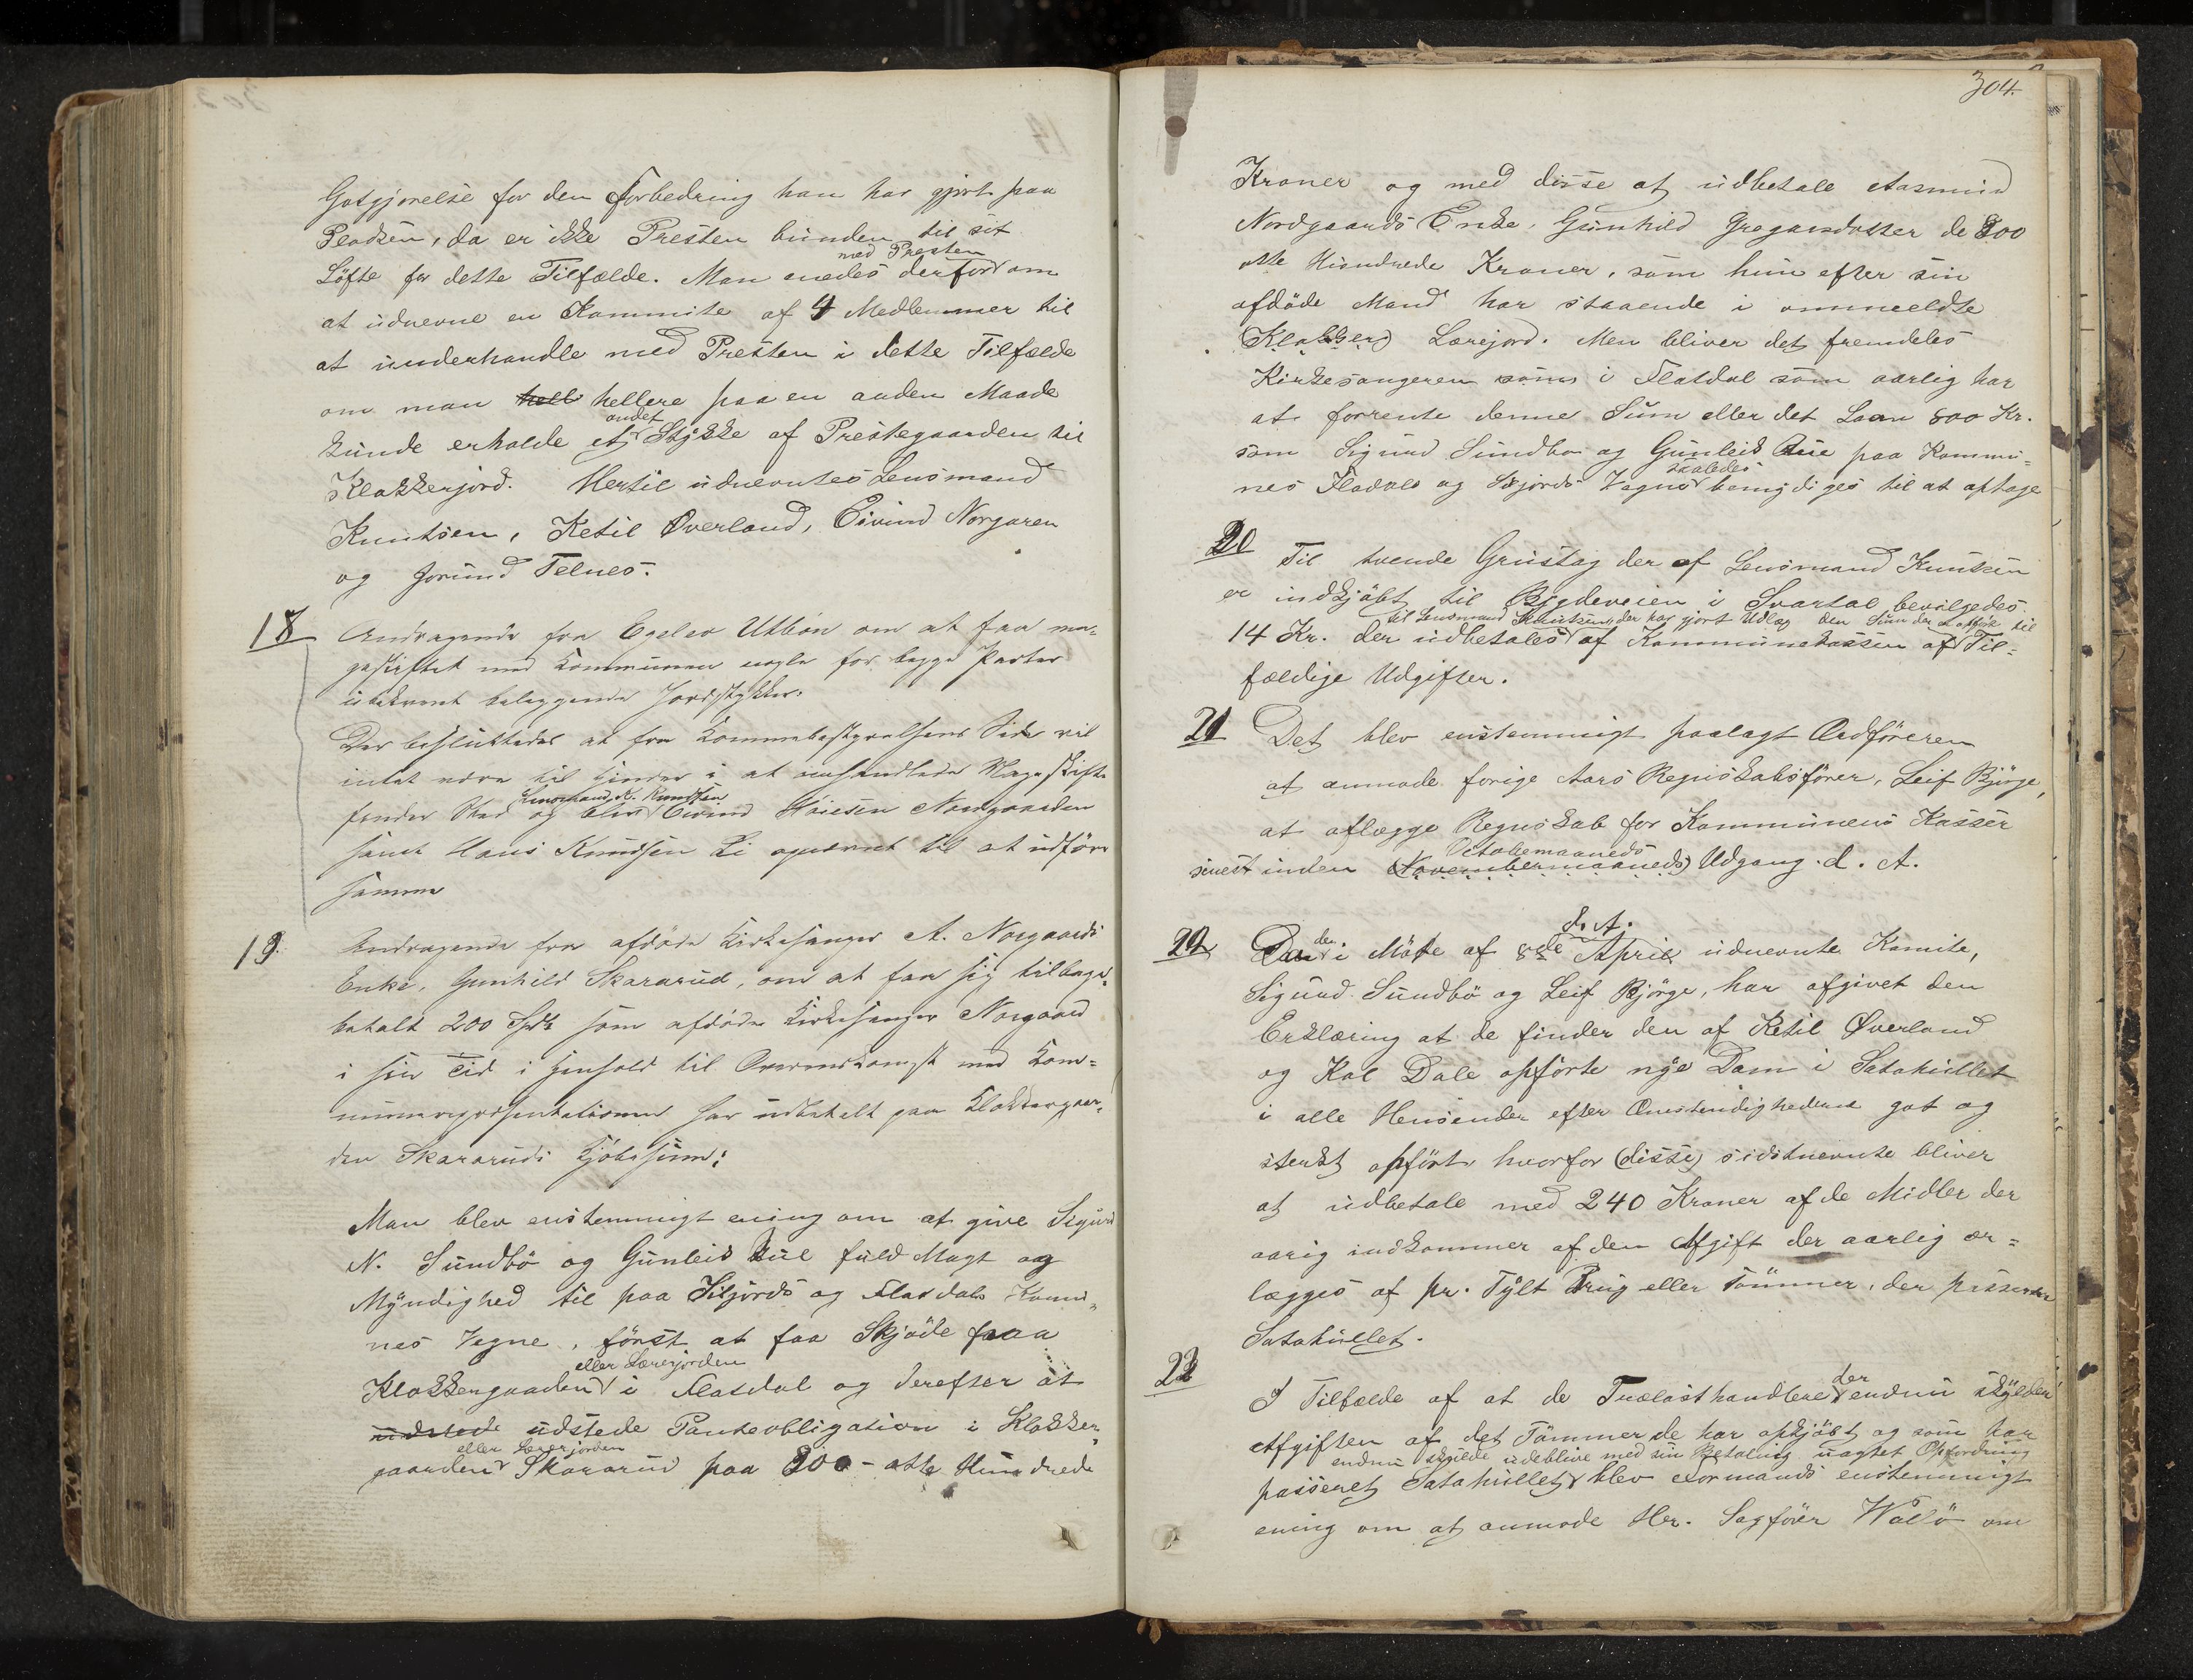 Gotgjörelse for den Forbedring han har gjort paa
Pladsen, da er ikke Presten bunden til sit
med Presten
Löfte for dette Tilfælde. Man enedes derfor om
at udnevne en Kommite af 4 Medlemmer til
at underhandle med Presten i dette Tilfælde
om man hell hellere paa en anden Maade
andet
kunde erholde et Stykke af Prestegaarden til
Klokkerjord. Hertil udnevntes Lensmand
Knutsen, Ketil Överland, Eivind Norgaren
og Jorund Telnes.
18 Andragende fra Egelev Utbön om at faa ma-
geskiftet med Kommunen nogle for begge Parter
ubekvemt beleggende Jordstykker.
Der besluttedes at fra Kommubestyrelsens Side vil
intet være til Hinder i at omhandlede Mageskifte
Lensmand N. Knudsen
finder Sted og blev Eivind Nordgaarden
samt Hans Knudsen Li opnævnt til at udföre
samme
19. Andragende fra afdöde Kirkesanger A. Norgaards
Enke, Gunhild Skararud, om at faa sig tilbage-
betalt 200 Spd som afdöde Kirkesanger Norgaard
i sin Tid i Henhold til Overenskomst med Kom=
munerepresentationen har udbetalt paa Klokkergaar-
den Skararuds Kjöbesum:
Man blev enstemmigt ening om at give Sigurd
N. Sundbö og Gunleid Rue fuld Magt og
Myndighed til paa Siljords og Flatdals Komu-
nes Vegne, först at faa Skjöde paa
eller Lærerjorden
Klokkergaarden i Flatdal og derefter at
udstede udstede Panteobligation i Klokker-
eller Lærerjorden
gaarden Skararud paa 800 - otte Hundrede
304.
Kroner og med disse at udbetale Aasmund
Nordgaards Enke, Gunhild Gregarsdatter de 800
otte Hundrede Kroner, som hun efter sin
afdöde Mand har staaende i ommeldte
(Klokker) Lærejord. Men bliver det fremdeles
Kirkesangeren som i Flatdal som aarlig har
at forrente denne Sum eller det Laan 800 Kr.
som Sigurd Sundbö og Gunleid Rue paa Kommu=
saaledes
nes Fladals og Sljords Vegne bemydiges til at optage
20 Til tvende Grustag der af Lensmand Knutsen
er indkjöbt til Bygdeveien i Svartdal bevilgedes
til Lensmand Knutsen, der har gjort Udlag den Sum der er opfört til
14 Kr. der udbetales af Kommunekassen af Til=
fældige Udgifter.
21 Det blev enstemmigt paalagt Ordföreren
at anmode forige Aars Regnskabsförer, Leif Björge,
at aflægge Regnskab for Kommunens Kasser
Octobemaaneds
senest inden (Novembermaaneds) Udgang d. A.
d. A.
22 Den i Möte af 8de April udnevnte Komite,
Sigurd Sundbö og Leif Björge, har afgivet den
Erklæring at de finder den af Ketil Överland
og Kol Dale opförte nye Dam i Satahullet
i alle Hensender efter Omstendighederne got og
sterkt opfört hvorfor (disse) sidstnevnte bliver
at udbetale med 240 Kroner af de Midler der
aarig indkommer af den Afgift der aarlig er=
lægges af pr. Tylt Brug eller Tömmer, der passerer
Satahullet.
23
der
I Tilfælde af at de Trælasthandlere endnu skylder
Afgiften af det Tömmer de har opkjöbt og som har
endnu skylde udeblive med sin Betaling uagtet Opfordring
passeret Satahullet blev Formands enstemmigt
ening om at anmode Hr. Sagförer Wallö om